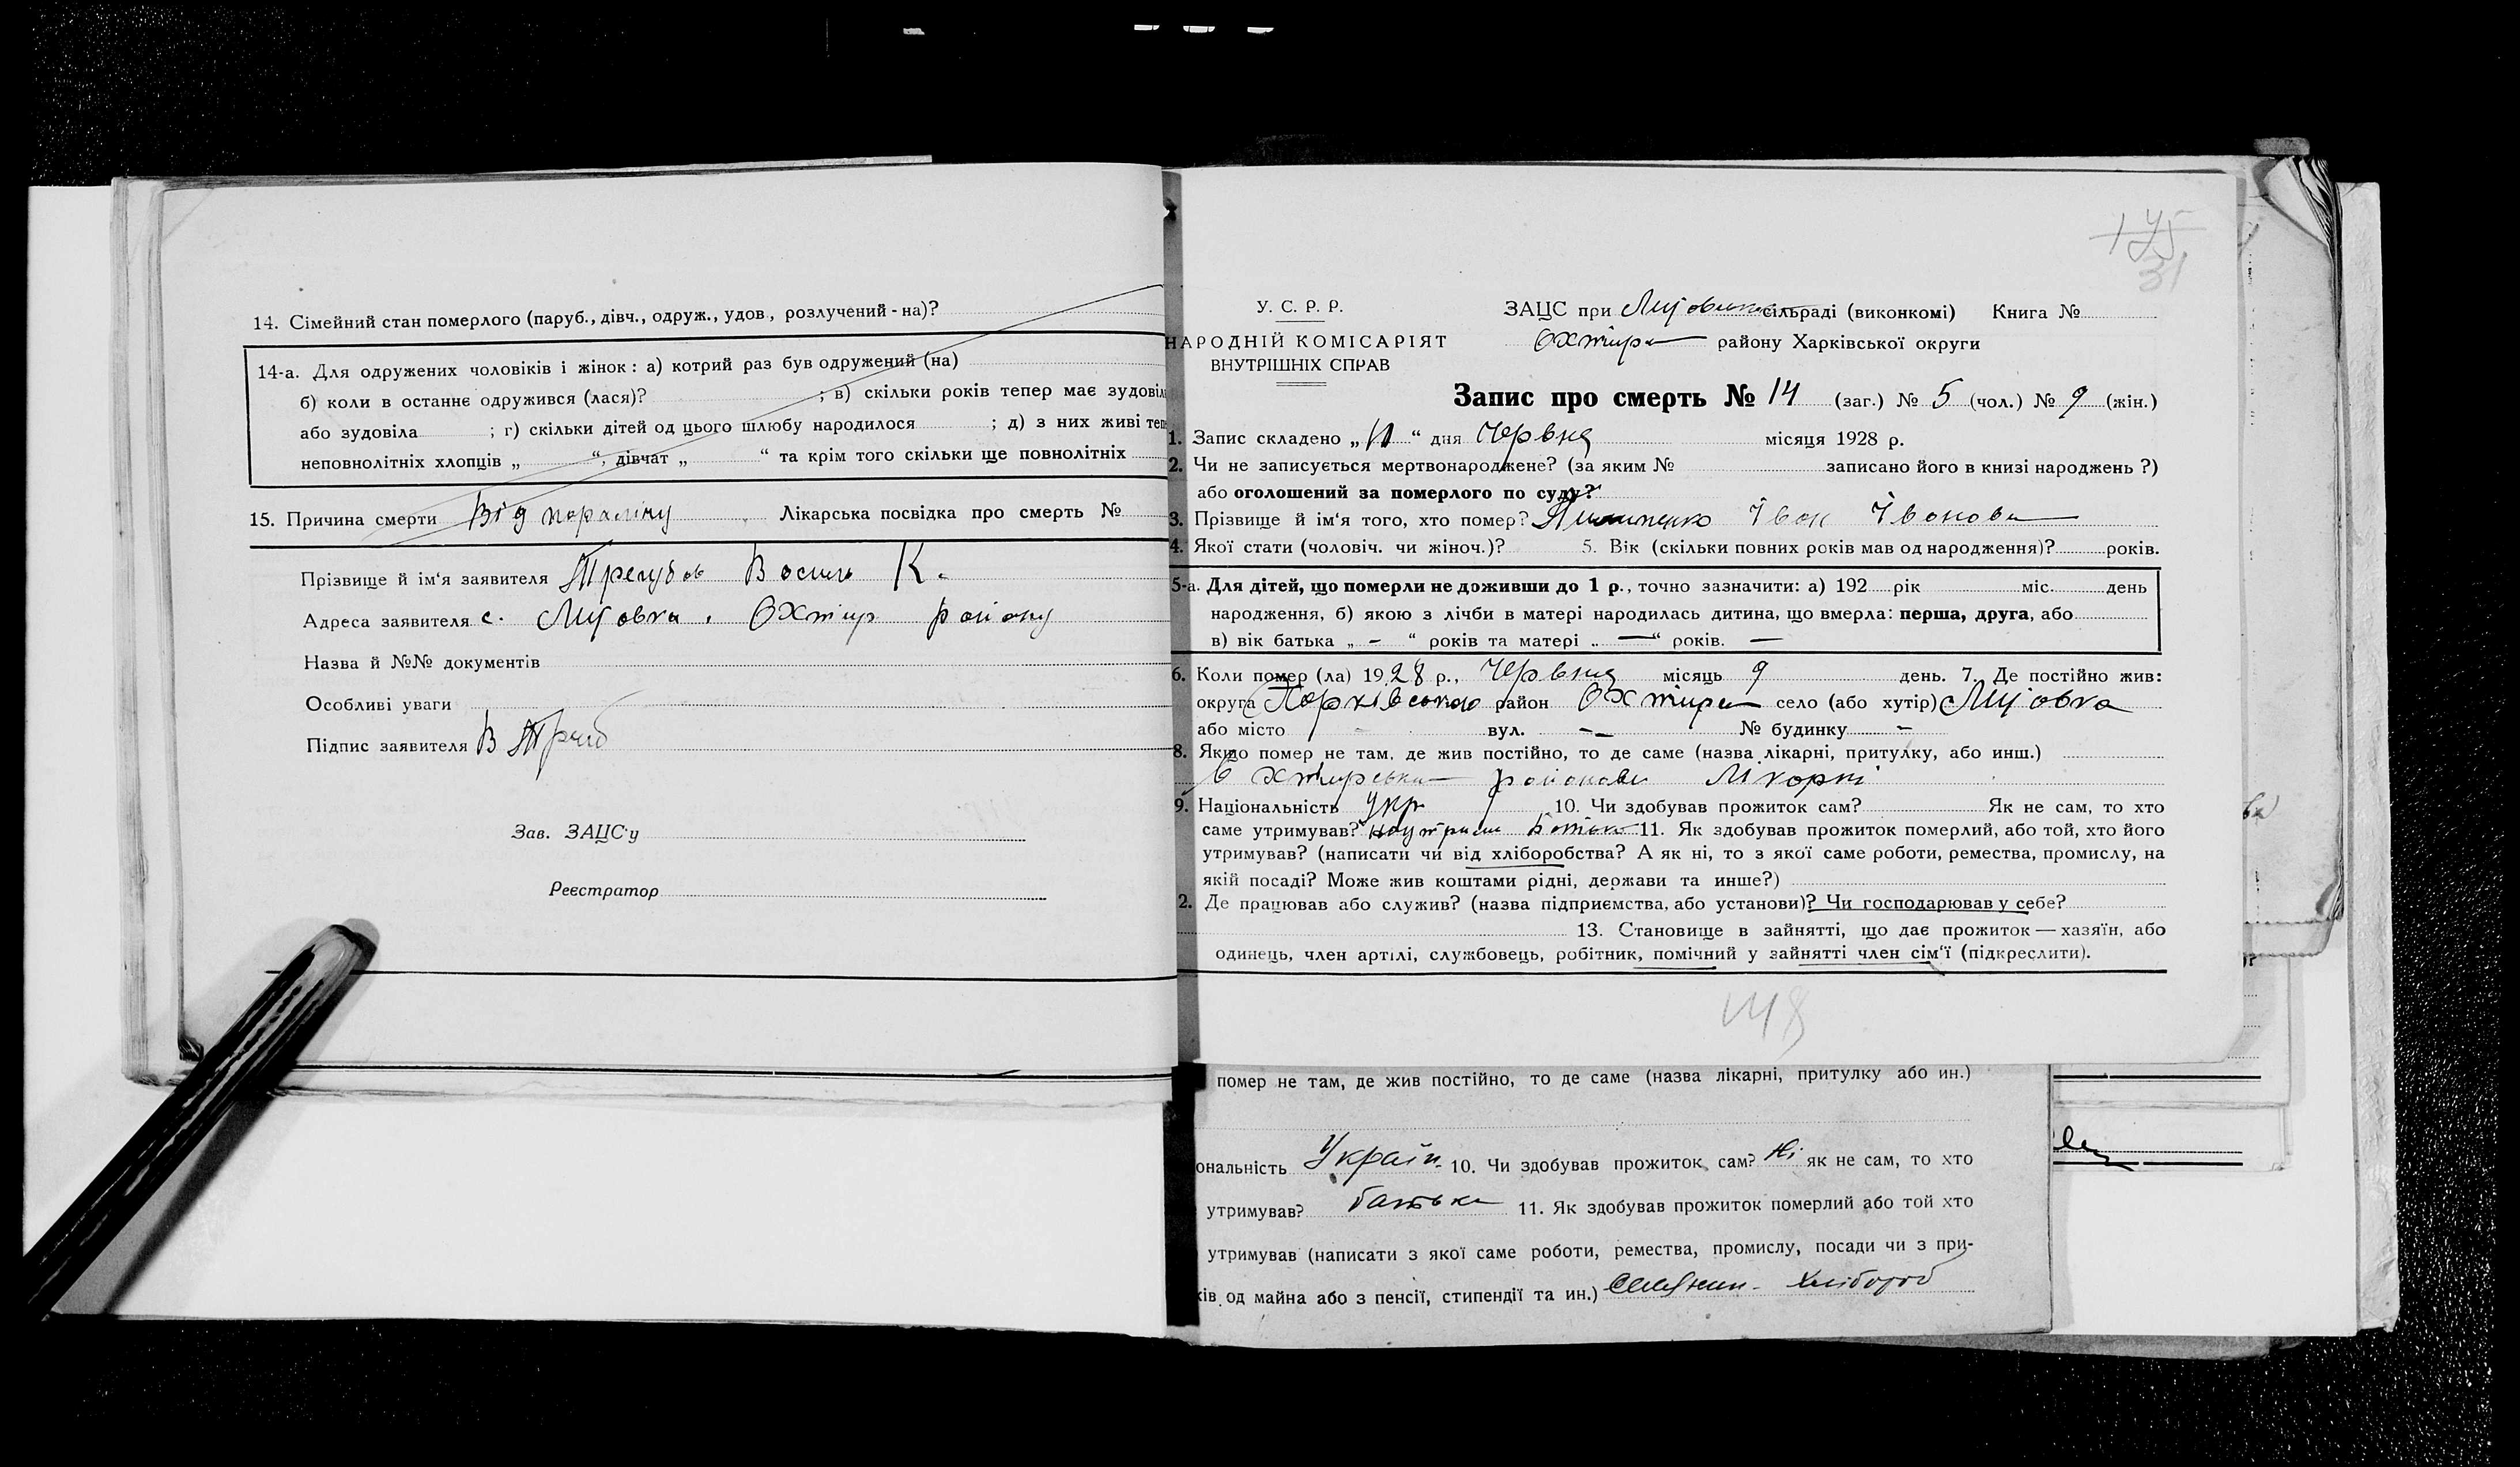 14. Сімейний стан померлого (паруб., дівч., одруж., удов., розлучений - на)?
14-а. Для одружених чоловіків і жінок: а) котрий раз був одружений (на)
б) коли в останнє одружився (лася)? ; в) скільки років тепер має зудовіл
або зудовіла ; г) скільки дітей од цього шлюбу народилося ; д) з них живі теп
неповнолітніх хлопців „ “, дівчат „ “ та крім того скільки ще повнолітніх
15. Причина смерти Від Лікарська посвідка про смерть №
Прізвище й ім‘я заявителя Трегубов Василь К.
Адреса заявителя с. Охтир району
Назва й №№ документів
Особливі уваги
Підпис заявителя В
Зав. ЗАЦС‘у
Реєстратор
31
У. С. Р. Р.
НАРОДНІЙ КОМІСАРІЯТ
ВНУТРІШНІХ СПРАВ
ЗАЦС при сільраді (виконкомі) Книга №
Охтирс району Харківської округи
Запис про смерть № 14 (заг.) № 5 (чол.) № 9 (жін.)
1. Запис складено „ “ дня Червня місяця 1928 р.
2. Чи не записується мертвонароджене? (за яким № записано його в книзі народжень ?)
або оголошений за померлого по суду?
3. Прізвище й ім‘я того, хто помер? Іван Іванови
4. Якої стати (чоловіч. чи жіноч.)? 5. Вік (скільки повних років мав од народження)? років.
5-а. Для дітей, що померли не доживши до 1 р., точно зазначити: а) 192 рік міс. день
народження, б) якою з лічби в матері народилась дитина, що вмерла: перша, друга, або
в) вік батька „ - “ років та матері „ — “ років. —
6. Коли помер (ла) 1928 р., Червня місяць 9 день. 7. Де постійно жив:
округа Харківською район Охтирс село (або хутір)
або місто - вул. - № будинку -
8. Якщо помер не там, де жив постійно, то де саме (назва лікарні, притулку, або инш.)
Охтирськи районови лікарні
9. Національність укр 10. Чи здобував прожиток сам? Як не сам, то хто
саме утримував? 11. Як здобував прожиток померлий, або той, хто його
утримував? (написати чи від хліборобства? А як ні, то з якої саме роботи, ремества, промислу, на
якій посаді? Може жив коштами рідні, держави та инше?)
2. Де працював або служив? (назва підприємства, або установи)? Чи господарював у себе?
13. Становище в зайнятті, що дає прожиток — хазяїн, або
одинець, член артілі, службовець, робітник, помічний у зайнятті член сім‘ї (підкреслити).
помер не там, де жив постійно, то де саме (назва лікарні, притулку або ин.)
ональність Україн. 10. Чи здобував прожиток сам? Ні як не сам, то хто
утримував? батьки 11. Як здобував прожиток померлий або той хто
утримував (написати з якої саме роботи, ремества, промислу, посади чи з при-
ків од майна або з пенсії, стипендії та ин.) Селянин - хлібороб